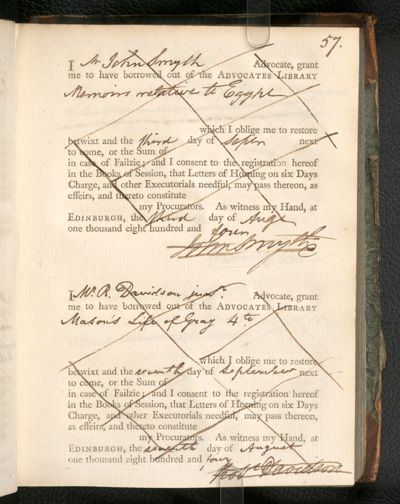 57.
I Mr John Smyth Advocate, grant
me to have borrowed out of the ADVOCATES LIBRARY
Memoirs relative to Egypt
which I oblige me to restore
betwixt and the third day of Septr next
to come, or the Sum of
in case of Failzie; and I consent to the registration hereof
in the Books of Session, that Letters of Horning on six Days
Charge, and other Executorials needful, may pass thereon, as
effeirs, and thereto constitute
my Procurators. As witness my Hand, at
EDINBURGH, the third day of Augt
one thousand eight hundred and four
John Smyth
I Mr R. Davidson junr. Advocate, grant
me to have borrowed out of the ADVOCATES LIBRARY
Mason's Life of Gray 4to
which I oblige me to restore
betwixt and the seventh day of September next
to come, or the Sum of
in case of Failzie; and I consent to the registration hereof
in the Books of Session, that Letters of Horning on six Days
Charge, and other Executorials needful, may pass thereon,
as effeirs, and thereto constitute
my Procurators. As witness my Hand, at
EDINBURGH, the seventh day of August
one thousand eight hundred and four
Robt Davidson